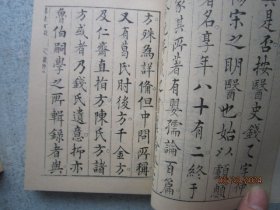 其是否按醫史錢乙字
陽宋之明醫也始以顱顖
著名享年八十有二終于
家其所著有嬰孺論百篇
方殊為詳備但中間所稱
又有葛氏肘後方千金方
及仁齋直指方陳氏方諸
方或者乃錢氏遺意抑亦
曾伯嗣學之所輯錄者與